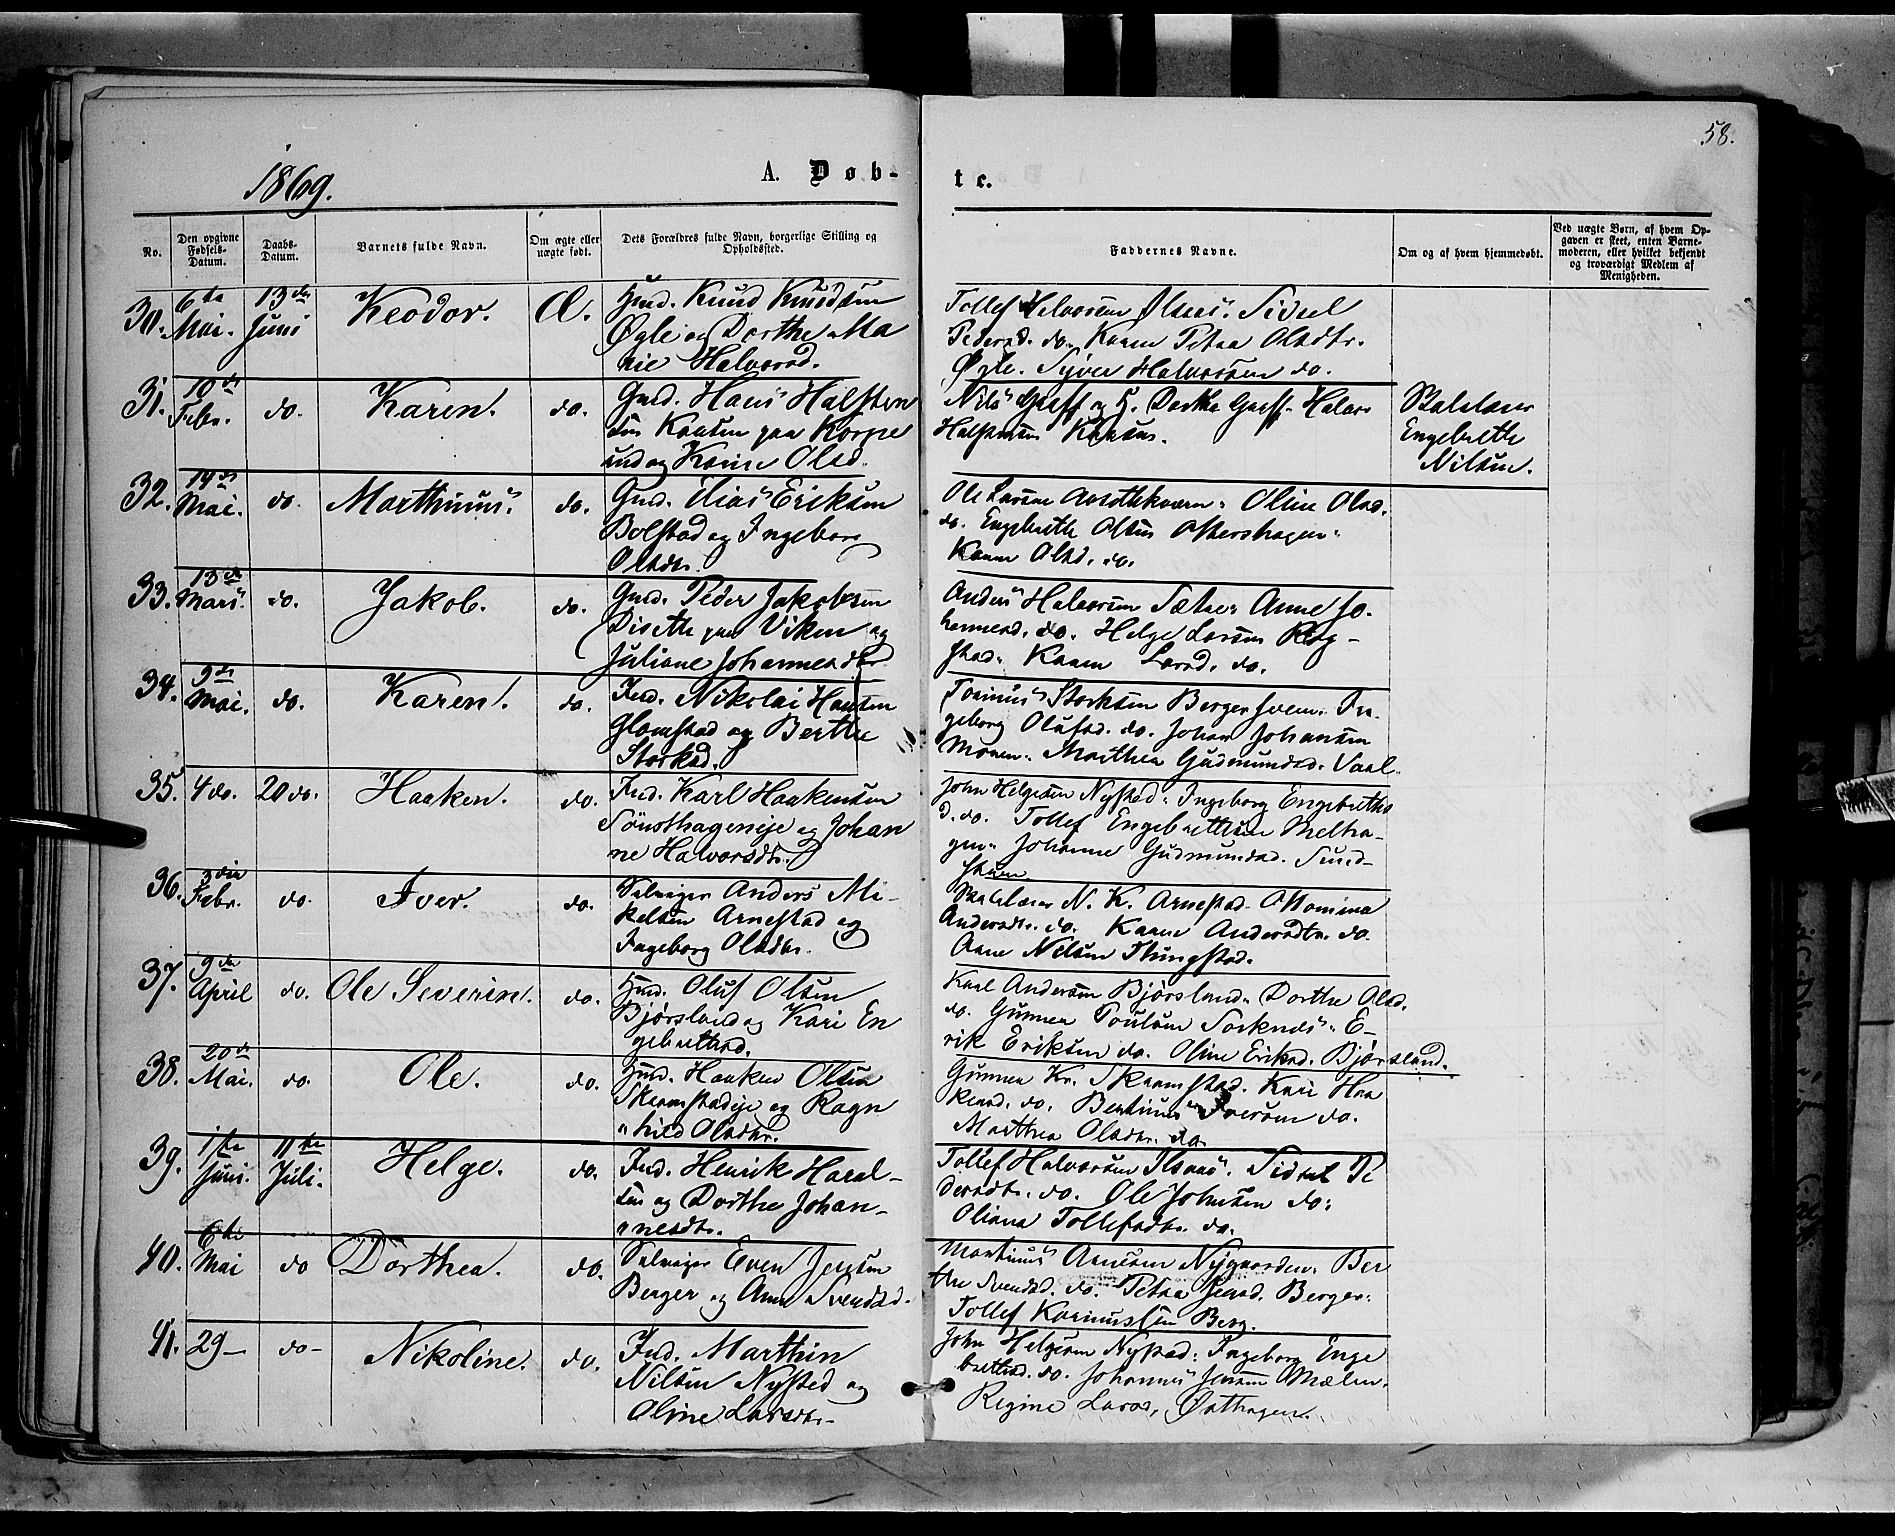 58.
1869.
A. Døb-
te.
No.
Den opgivne Fødsels-Datum.
Daabs-Datum.
Barnets fulde Navn.
Om ægte eller uægte født.
Dets Forældres fulde Navn, borgerlige Stilling og Opholdssted.
Faddernes Navne.
Om og af hvem hjemmedøbt.
Ved uægte Børn, af hvem Opgaven er skeet, enten Barnemoderen, eller hvilket bekjendt og troværdigt Medlem af Menigheden.
30. 6te Mai. 13de Juni Keodor. Æ. Gmd. Knud Knudsen
Øgle og Dorthe Ma
rie Halvorsd.
Tollef Halvorsen Sidsel
Pedersd. do. Karen Petra Olsdtr.
Øgle. Syver Halvorsen do.
31. 10de Febr. do. Karen. do. Gmd. Hans Halsten
sen Kaasen paa Korpe
und og Karen Olsd.
Nils Graff og H. Dorthe Graff. Halvor
Halstensen Kaasen.
Skolelærer
Engebrethe
Nilsen.
32. 14de Mai. do. Marthinus. do. Gmd. Elias Eriksen
Bolstad og Ingeborg
Olsdtr.
Ole Larsen Oline Olsd.
do. Engebreth Olsen
Karen Olsd. do.
33. 13de Mars. do. Jakob. do. Gmd. Peder Jakobsen
Diseth paa Viken og
Juliane Johannesdtr.
Anders Halvorsen Sætre. Anne Jo-
hannesd. do. Helge Larsen Ring-
stad. Karen Larsd. do.
34. 9de Mai. do. Karen. do. Ind. Nikolai Hansen
Glomstad og Berthe
Storksd.
Storksen Bergersveen. In-
geborg Olufsd. do. Johan Johansen
Moen. Marthea Gudmundsd.
35. 4 do. 20 do. Haaken. do. Ind. Karl Haakensen
Sønsthageneje og Johan
ne Halvorsdtr.
John Helgesen Nysted. Ingeborg Engebreths
d. do. Tollef Engebrettsen Melha-
gen. Johanne Gudmundsd. Sund-
36. 3die Febr. do. Iver. do. Selveier Anders Mi-
kelsen Arnestad og
Ingeborg Olsdtr.
Skolelærer N. K. Arnestad.
Andersdtr. do. Karen Andersdtr. do.
Arne Nilsen Ringstad.
37. 9de April do. Ole Severin. do. Gmd. Oluf Olsen
Bjørsland og Kari En
gebrethsd.
Karl Andersen Bjørsland. Dorthe Olsd.
do. Gunnar Poulsen Sorknæs. E-
rik Eriksen do. Oline Eriksd. Bjørsland.
38. 20de Mai. do. Ole. do. Gmd. Haaken Olsen
Skramstadeje og Ragn
hild Olsdtr.
Gunnar Kr. Skramstad. Kari Haa
kensd. do. Bertinus Iversen do.
Marthea Olsdtr. do.
39. 1ste Juni. 11te Juli. Helge. do. Ind. Henrik Haral-
sen og Dorthe Johan-
nesdtr.
Tollef Halvorsen Sidsel Pe
dersdtr. do. Ole Johnsen do.
Oliana Tollefsdtr. do.
40. 6te Mai do Dorthea. do. Selveier Even Jensen
Berger og Anne Svendsd.
Martinus Arnesen Nygaarden. Ber
the Svendsd. do. Petra Jensd. Berger.
Tollef Karinussen Berg.
41. 29 – do – Nikoline. do. Ind. Marthin
Nilsen Nysted og
Oline Larsdtr.
John Helgesen Nysted. Ingeborg Enge
brethsd. do. Johannes Jensen Mælen.
Regine Larsd. Østhagen.